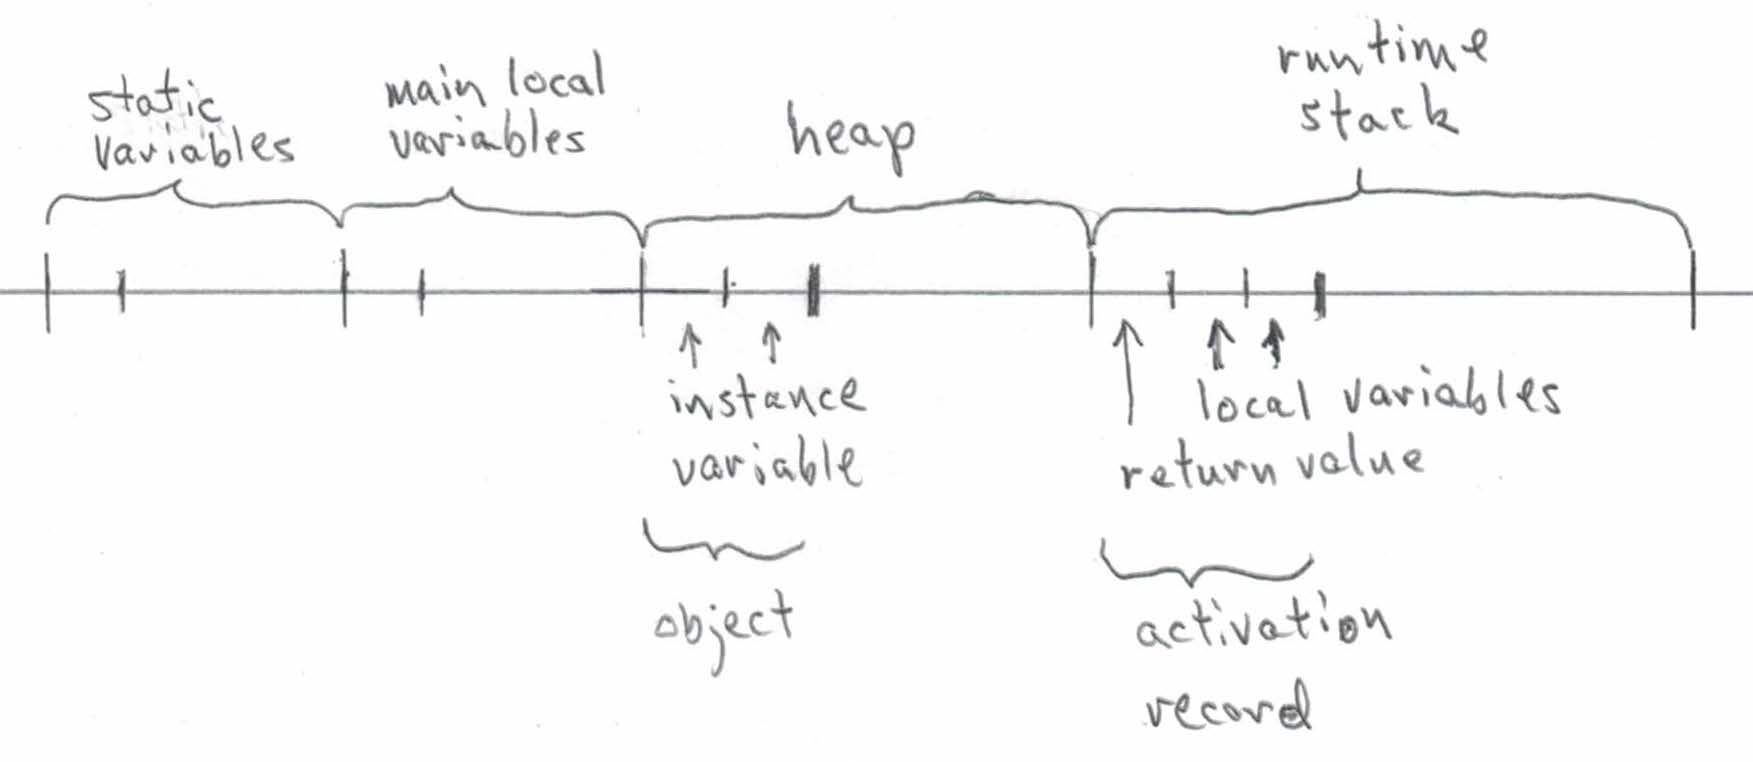 static
variables
main local
variables
heap
runtime
stack
instance
variable
object
local variables
return value
activation
record